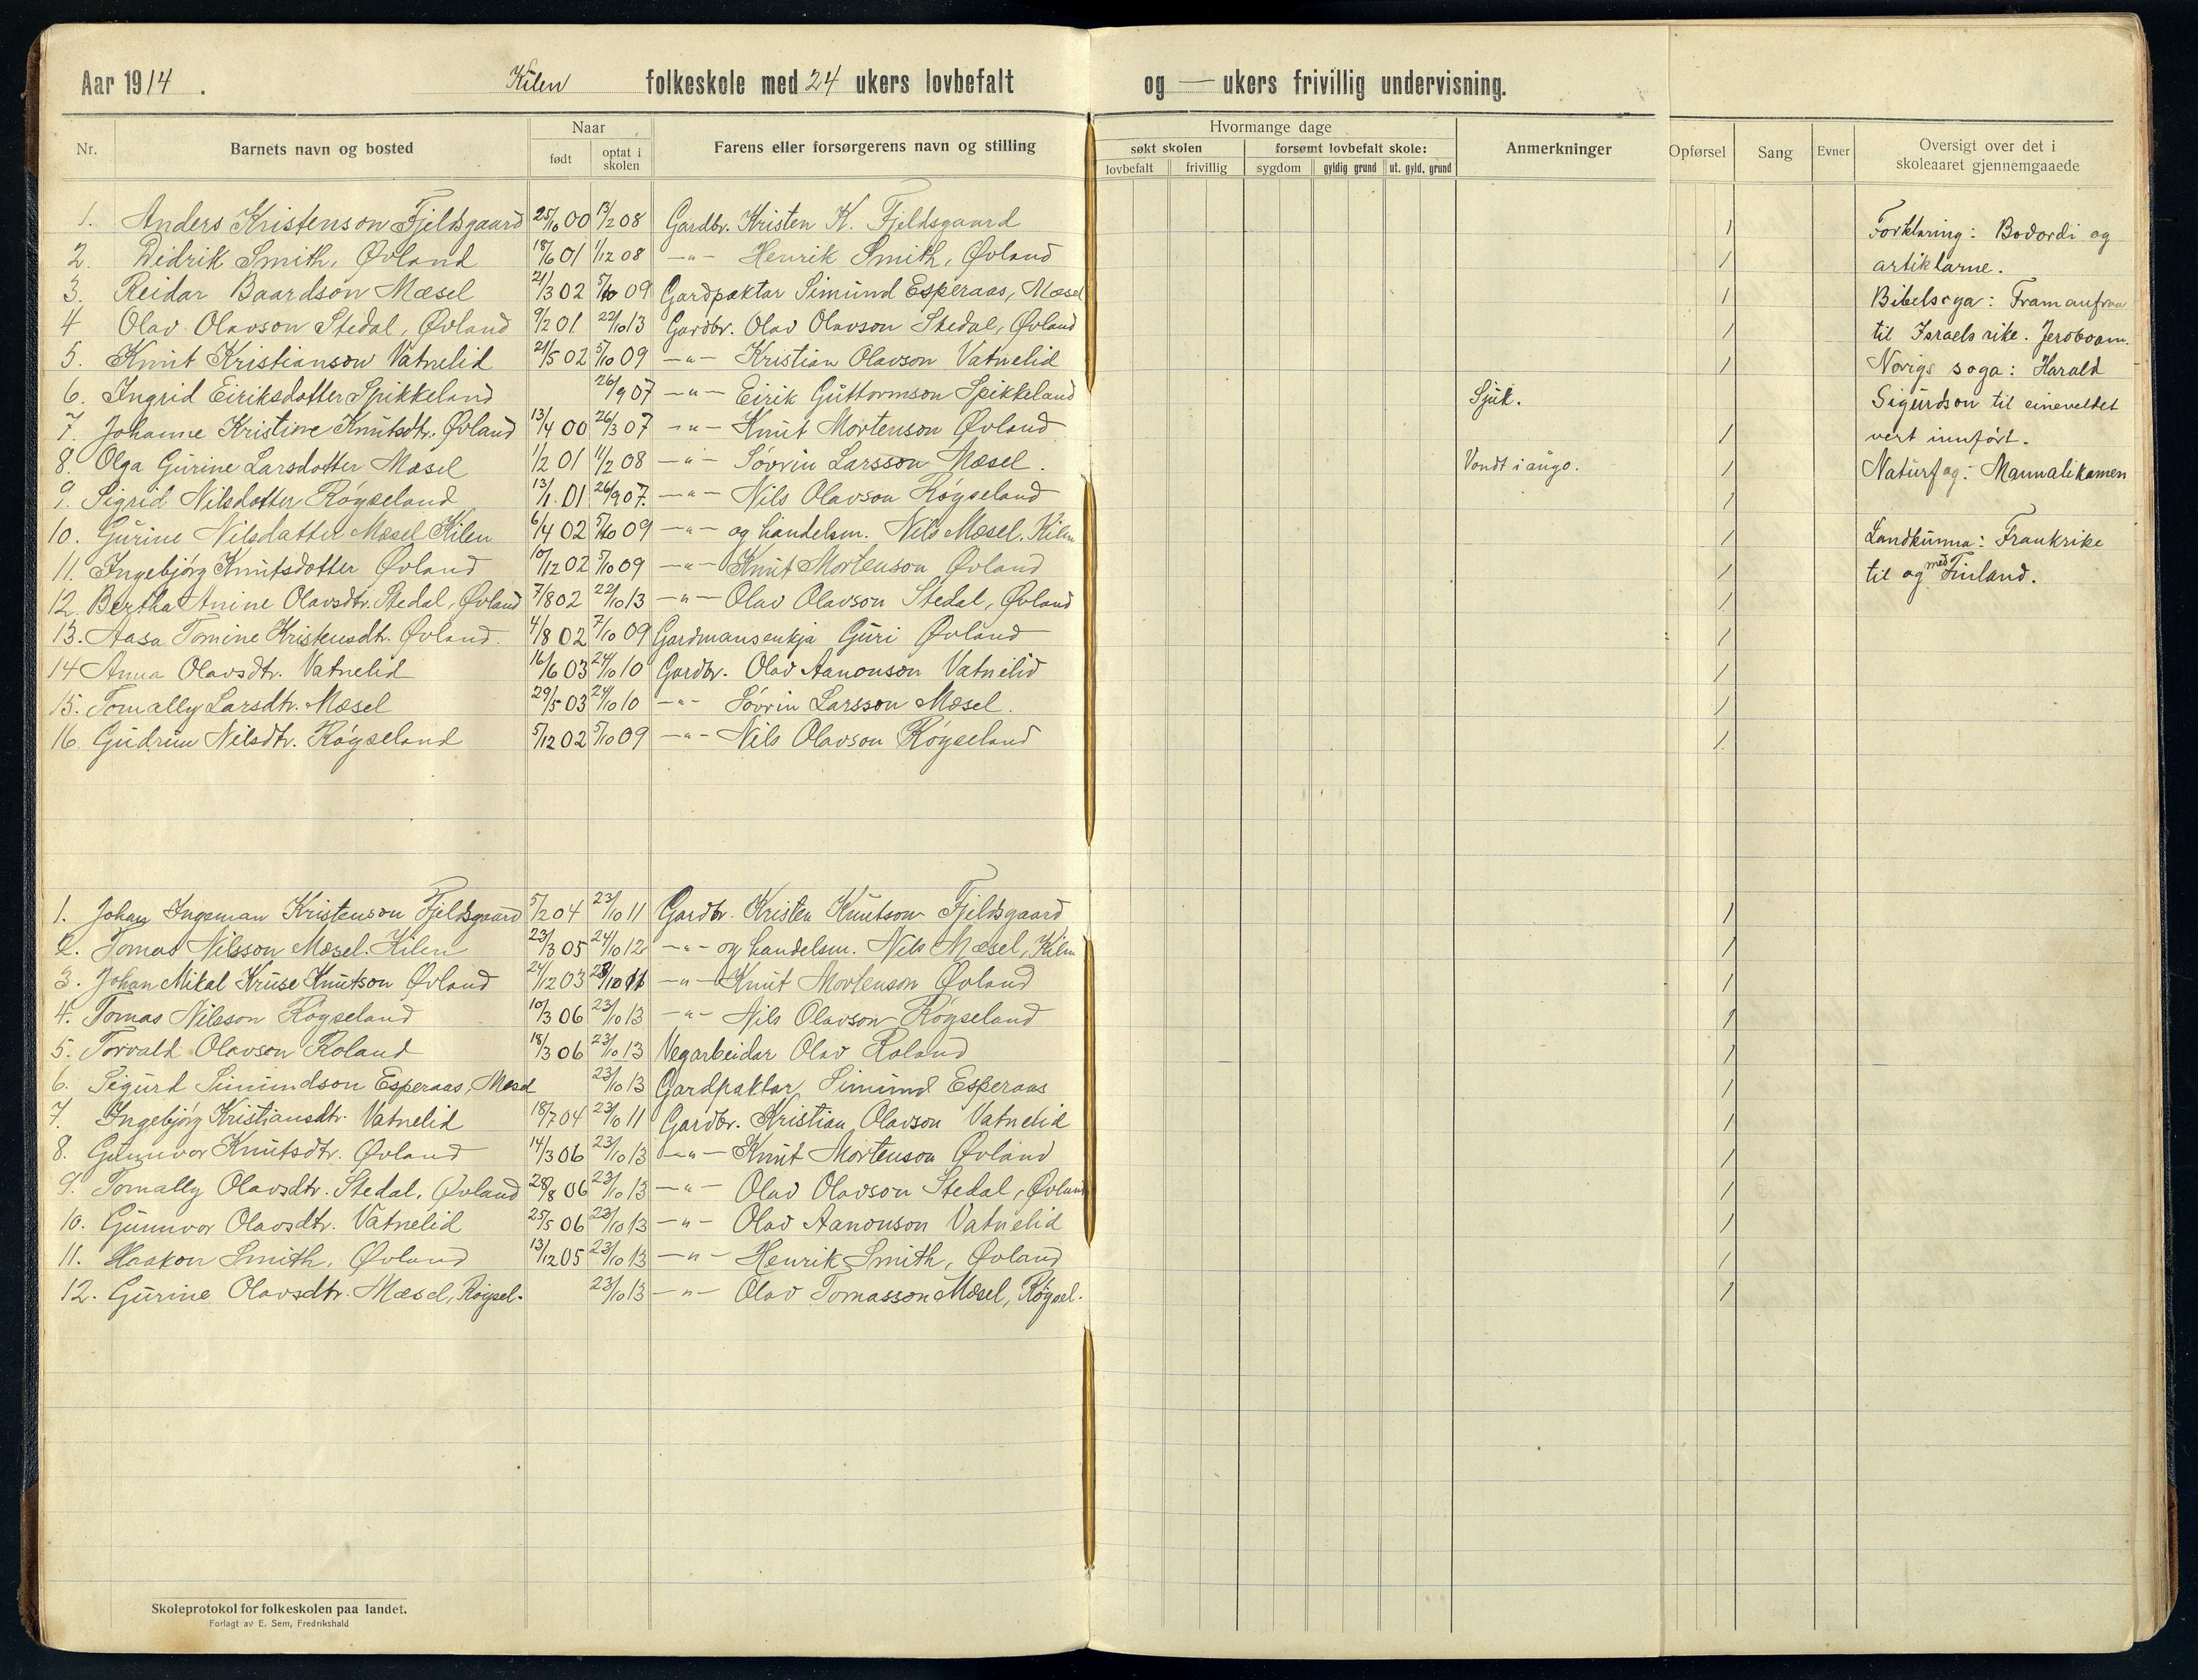 Aar 1914. Kilen folkeskole med 24 ukers lovbefalt og — ukers frivillig undervisning.
Nr. Barnets navn og bosted Naar født optat i skolen Farens eller forsørgerens navn og stilling Hvormange dage søkt skolen lovbefalt frivillig forsømt lovbefalt skole: sygdom gyldig grund ut. gyld. grund Anmerkninger Opførsel Sang Evner Oversigt over det i skoleaaret gjennemgaaede
1. Anders Kristenson Fjeldsgaard 25/10 00 13/2 08 Gardbr. Kristen K. Fjeldsgaard 1 Forklaring: Bodordi og
2. Didrik Smith, Øvland 18/6 01 1/12 08 -"- Henrik Smith, Øvland 1 artiklarne.
3. Reidar Baardson Mæsel 21/3 02 5/10 09 Gardpaktar Simund Esperaas, Mæsel 1 Bibelsoga: Framanfraa
4 Olav Olavson Stedal, Øvland 9/2 01 22/10 13 Gardbr. Olav Olavson Stedal, Øvland 1 til Israels rike. Jeroboam.
5. Knut Kristianson Vatnelid 21/5 02 5/10 09 -"- Kristian Olavson Vatnelid 1 Norigs soga: Harald
6. Ingrid Eiriksdotter Spikkeland 26/9 07 -"- Eirik Guttormson Spikkeland Sjuk. Sigurdson til eineveldet
7. Johanne Kristine Knutsdtr. Øvland 13/4 00 26/3 07 -"- Knut Mortenson Øvland 1 vert innført.
8. Olga Gurine Larsdotter Mæsel 1/2 01 11/2 08 -"- Søvrin Larsson Mæsel. Vondt i augo. 1 Naturfag: Mannalikamen
9. Sigrid Nilsdotter Røyseland 13/1. 01 26/9 07. -"- Nils Olavson Røyseland 1
10. Gurine Nilsdatter Mæsel Kilen 6/4 02 5/10 09 -"- og handelsm. Nils Mæsel, Kilen 1 Landkunna: Frankrike
11. Ingebjørg Knutsdotter Øvland 10/12 02 5/10 09 -"- Knut Mortenson Øvland 1 til og med Finland.
12. Bertha Anine Olavsdtr. Stedal, Øvland 7/8 02 22/10 13 -"- Olav Olavson Stedal, Øvland 1
13. Aasa Tomine Kristensdtr. Øvland. 4/8 02 7/10 09 Gardmansenkja Guri Øvland 1
14 Anna Olavsdtr. Vatnelid 16/6 03 24/10 10 Gardbr. Olav Aanonson Vatnelid 1
15. Tomally Larsdtr. Mæsel 29/5 03 24/10 10 -"- Søvrin Larsson Mæsel. 1
16. Gudrun Nilsdtr. Røyseland 5/12 02 5/10 09 -"- Nils Olavson Røyseland 1.
1. Johan Ingeman Kristenson Fjeldsgaard 5/2 04 23/10 11 Gardbr. Kristen Knutson Fjeldsgaard 1
2. Tomas Nilsson Mæsel. Kilen 23/3 05 24/10 12 -"- og handelsm. Nils Mæsel, Kilen 1
3. Johan Mikal Kruse Knutson Øvland 24/12 03 23/10 11 -"- Knut Mortenson Øvland 1
4. Tomas Nilsson Røyseland 10/3 06 23/10 13 -"- Nils Olavson Røyseland 1
5. Torvald Olavson Roland 18/3 06 23/10 13 Vegarbeidar Olav Roland 1
6. Sigurd Simundson Esperaas, Mæsel 23/10 13 Gardpaktar Simund Esperaas 1
7. Ingebjørg Kristiansdtr. Vatnelid 18/7 04 23/10 11 Gardbr. Kristian Olavson Vatnelid 1
8. Gunnvor Knutsdtr. Øvland 14/3 06 23/10 13 -"- Knut Mortenson Øvland 1
9. Tomally Olavsdtr. Stedal, Øvland 28/8 06 23/10 13 -"- Olav Olavson Stedal, Øvland 1
10. Gunnvor Olavsdtr. Vatnelid 25/5 06 23/10 13 -"- Olav Aanonson Vatnelid 1
11. Haakon Smith, Øvland 13/12 05 23/10 13 -"- Henrik Smith, Øvland 1
12. Gurine Olavsdtr. Mæsel, Røysel. 23/10 13 -"- Olav Tomasson Mæsel, Røysel. 1
Skoleprotokol for folkeskolen paa landet.
Forlagt av E. Sem, Fredrikshald